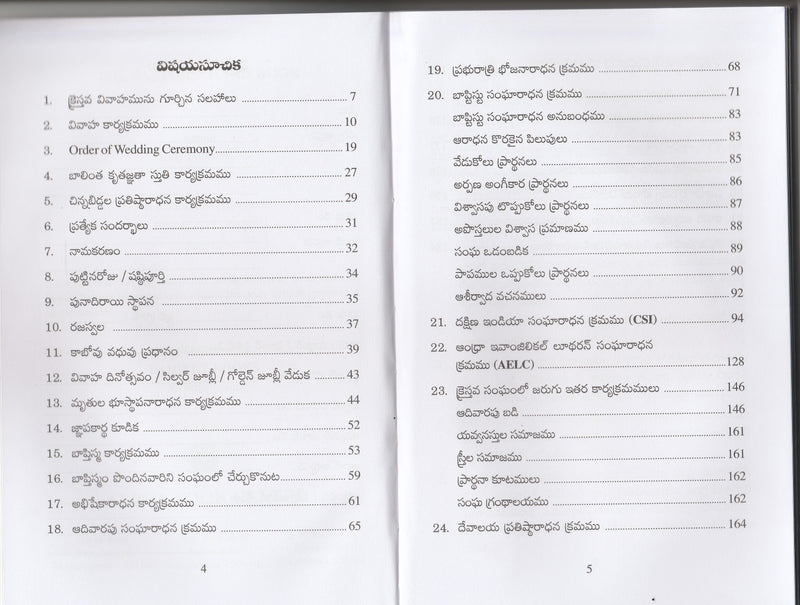 విషయసూచిక
1. క్రైస్తవ వివాహమును గూర్చిన సలహాలు ........ 7
2. వివాహ కార్యక్రమము ........ 10
3. Order of Wedding Ceremony ........ 19
4. బాలింత కృతజ్ఞతా స్తుతి కార్యక్రమము ........ 27
5. చిన్నబిడ్డల ప్రతిష్ఠారాధన కార్యక్రమము ........ 29
6. ప్రత్యేక సందర్భాలు ........ 31
7. నామకరణం ........ 32
8. పుట్టినరోజు / షష్టిపూర్తి ........ 34
9. పునాదిరాయి స్థాపన ........ 35
10. రజస్వల ........ 37
11. కాబోవు వధువు ప్రధానం ........ 39
12. వివాహ దినోత్సవం / సిల్వర్ జూబ్లీ / గోల్డెన్ జూబ్లీ వేడుక ........ 43
13. మృతుల భూస్థాపనారాధన కార్యక్రమము ........ 44
14. జ్ఞాపకార్థ కూడిక ........ 52
15. బాప్తిస్మ కార్యక్రమము ........ 53
16. బాప్తిస్మం పొందినవారిని సంఘంలో చేర్చుకొనుట ........ 59
17. అభిషేకారాధన కార్యక్రమము ........ 61
18. ఆదివారపు సంఘారాధన క్రమము ........ 65
4
19. ప్రభురాత్రి భోజనారాధన క్రమము ........ 68
20. బాప్టిస్టు సంఘారాధన క్రమము ........ 71
బాప్టిస్టు సంఘారాధన అనుబంధము ........ 83
ఆరాధన కొరకైన పిలుపులు ........ 83
వేడుకోలు ప్రార్థనలు ........ 85
అర్పణ అంగీకార ప్రార్థనలు ........ 86
విశ్వాసపు టొప్పుకోలు ప్రార్థనలు ........ 87
అపొస్తలుల విశ్వాస ప్రమాణము ........ 88
సంఘ ఒడంబడిక ........ 89
పాపముల ఒప్పుకోలు ప్రార్థనలు ........ 90
ఆశీర్వాద వచనములు ........ 92
21. దక్షిణ ఇండియా సంఘారాధన క్రమము (CSI) ........ 94
22. ఆంధ్రా ఇవాంజిలికల్ లూథరన్ సంఘారాధన
క్రమము (AELC) ........ 128
23. క్రైస్తవ సంఘంలో జరుగు ఇతర కార్యక్రమములు ........ 146
ఆదివారపు బడి ........ 146
యవ్వనస్తుల సమాజము ........ 161
స్త్రీల సమాజము ........ 161
ప్రార్థనా కూటములు ........ 162
సంఘ గ్రంథాలయము ........ 162
24. దేవాలయ ప్రతిష్ఠారాధన క్రమము ........ 164
5